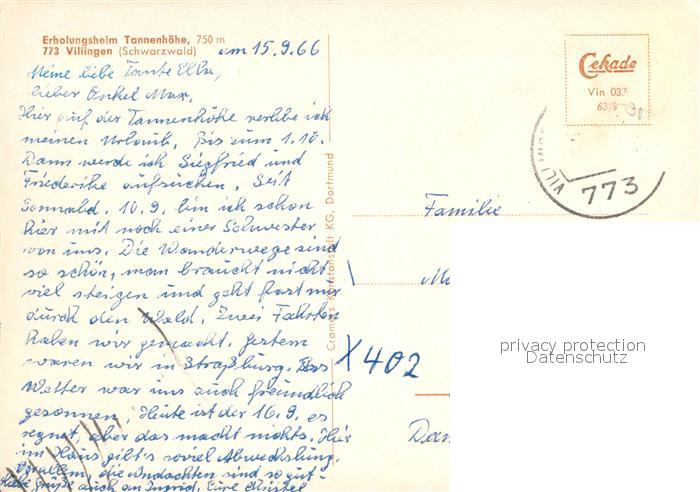 Erholungsheim Tannenhöhe, 750 m
773 Villingen (Schwarzwald)
am 15.9.66
Meine liebe Tante Ella,
lieber Onkel Max,
Hier auf der Tannenhöhe verlebe ich
meinen Urlaub, bis zum 1.10.
Dann werde ich Siegfried und
Friederike aufsuchen. Seit
Sonnabd. 10.9. bin ich schon
hier mit noch einer Schwester
von uns. Die Wanderwege sind
so schön, man braucht nicht
viel steigen und geht fast nur
durch den Wald. Zwei Fahrten
haben wir gemacht. Gestern
waren wir in Straßburg. Das
Wetter war uns auch freundlich
gesonnen. Heute ist der 16.9. es
regnet, aber das macht nichts. Hier
im Haus gibt's soviel Abwechslung.
Vorallem, die Andachten sind so gut.
Liebe Grüße auch an Ingrid. Eure Christel
Cramers Kunstanstalt KG, Dortmund
Cekade
Vin 037
63/9
VILLING
773
Familie
X402
privacy protection
Datenschutz